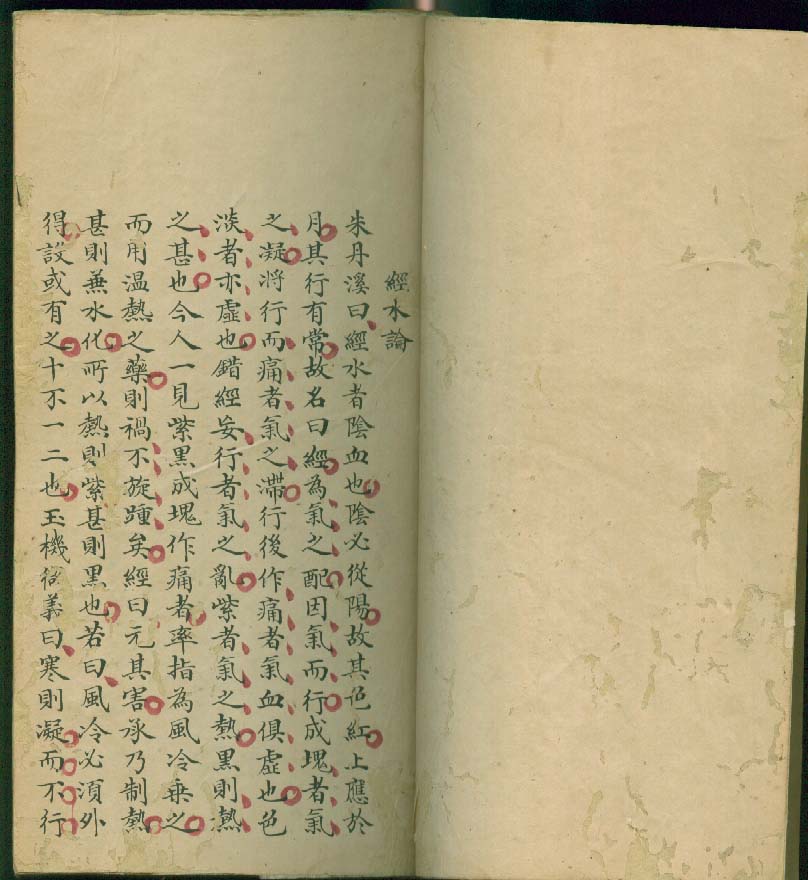 經水論
朱丹溪曰經水者陰血也陰必從陽故其色紅上應於
月其行有常故名曰經為氣之配因氣而行成塊者氣
之凝將行而痛者氣之滯行後作痛者氣血俱虛也色
淡者亦虛也錯經妄行者氣之亂紫者氣之熱黑則熱
之甚也今人一見紫黑成塊作痛者率指為風冷乗之
而用温熱之藥則禍不旋踵矣經曰亢其害承乃制熱
甚則兼水化所以熱則紫甚則黑也若曰風冷必須外
得設或有之十不一二也玉機微義曰寒則凝而不行